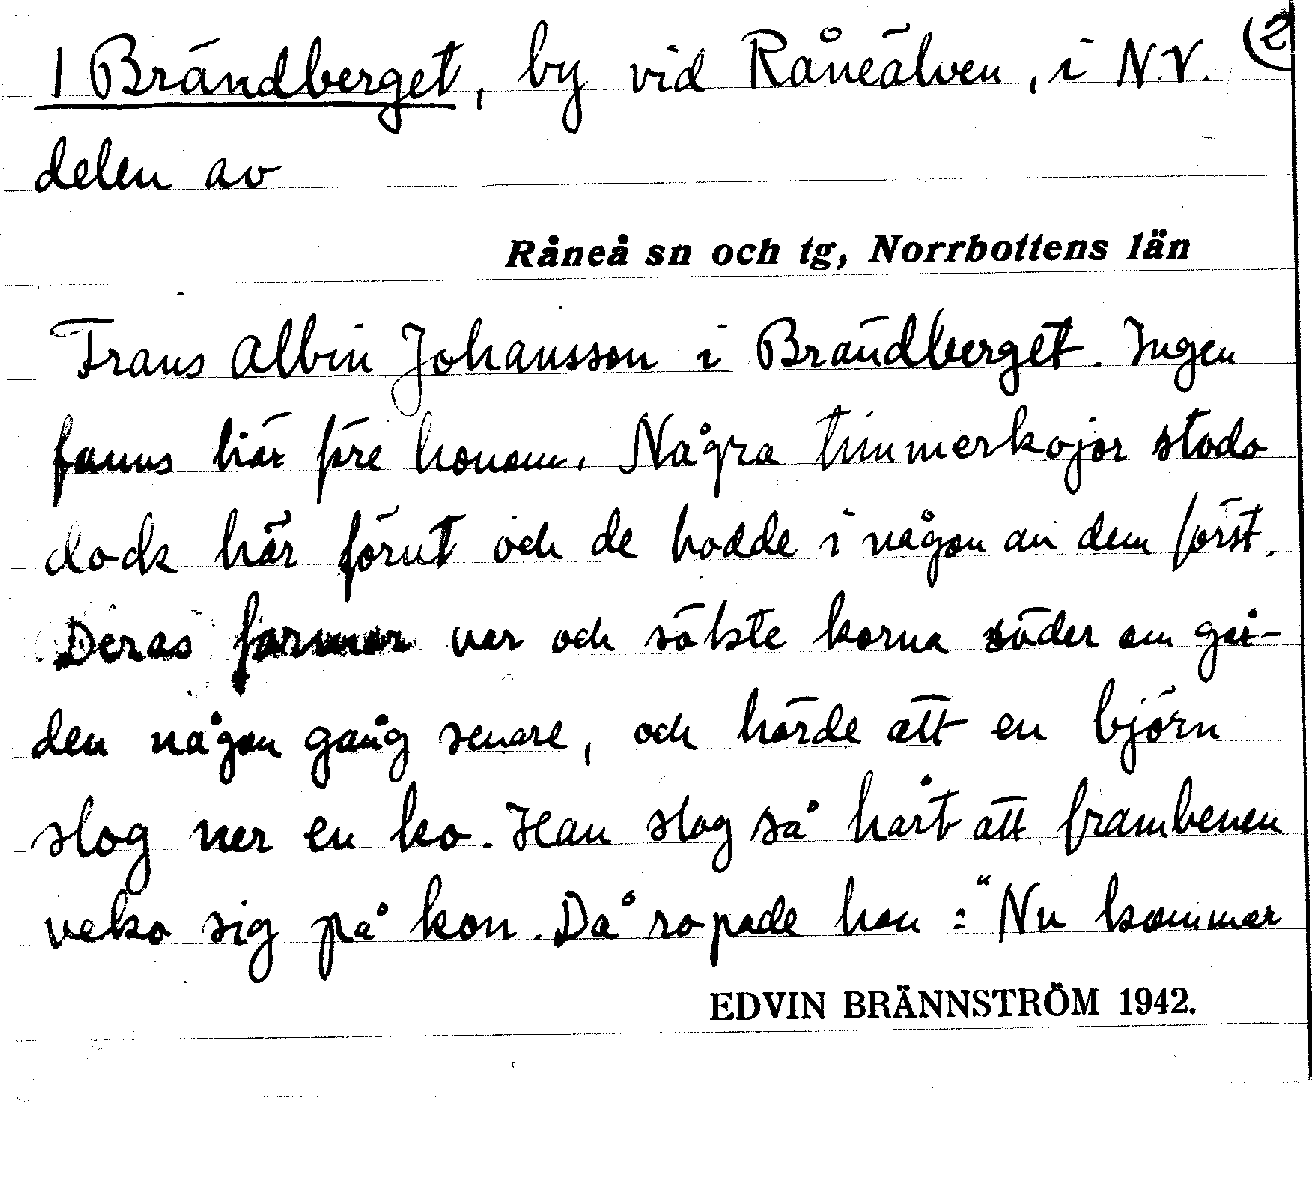 1 Brändberget, by vid Råneälven, i N.V. (2)
delen av
Råneå sn och tg, Norrbottens län
Frans Albin Johansson i Brändberget. Ingen
fanns här före honom. Några timmerkojor stodo
dock här förut och de bodde i någon av dem först.
Deras farmor var och sökte korna söder om går-
den någon gång senare, och hörde att en björn
slog ner en ko. Han slog så hårt att frambenen
veko sig på kon. Då ropade hon: "Nu kommer
EDVIN BRÄNNSTRÖM 1942.